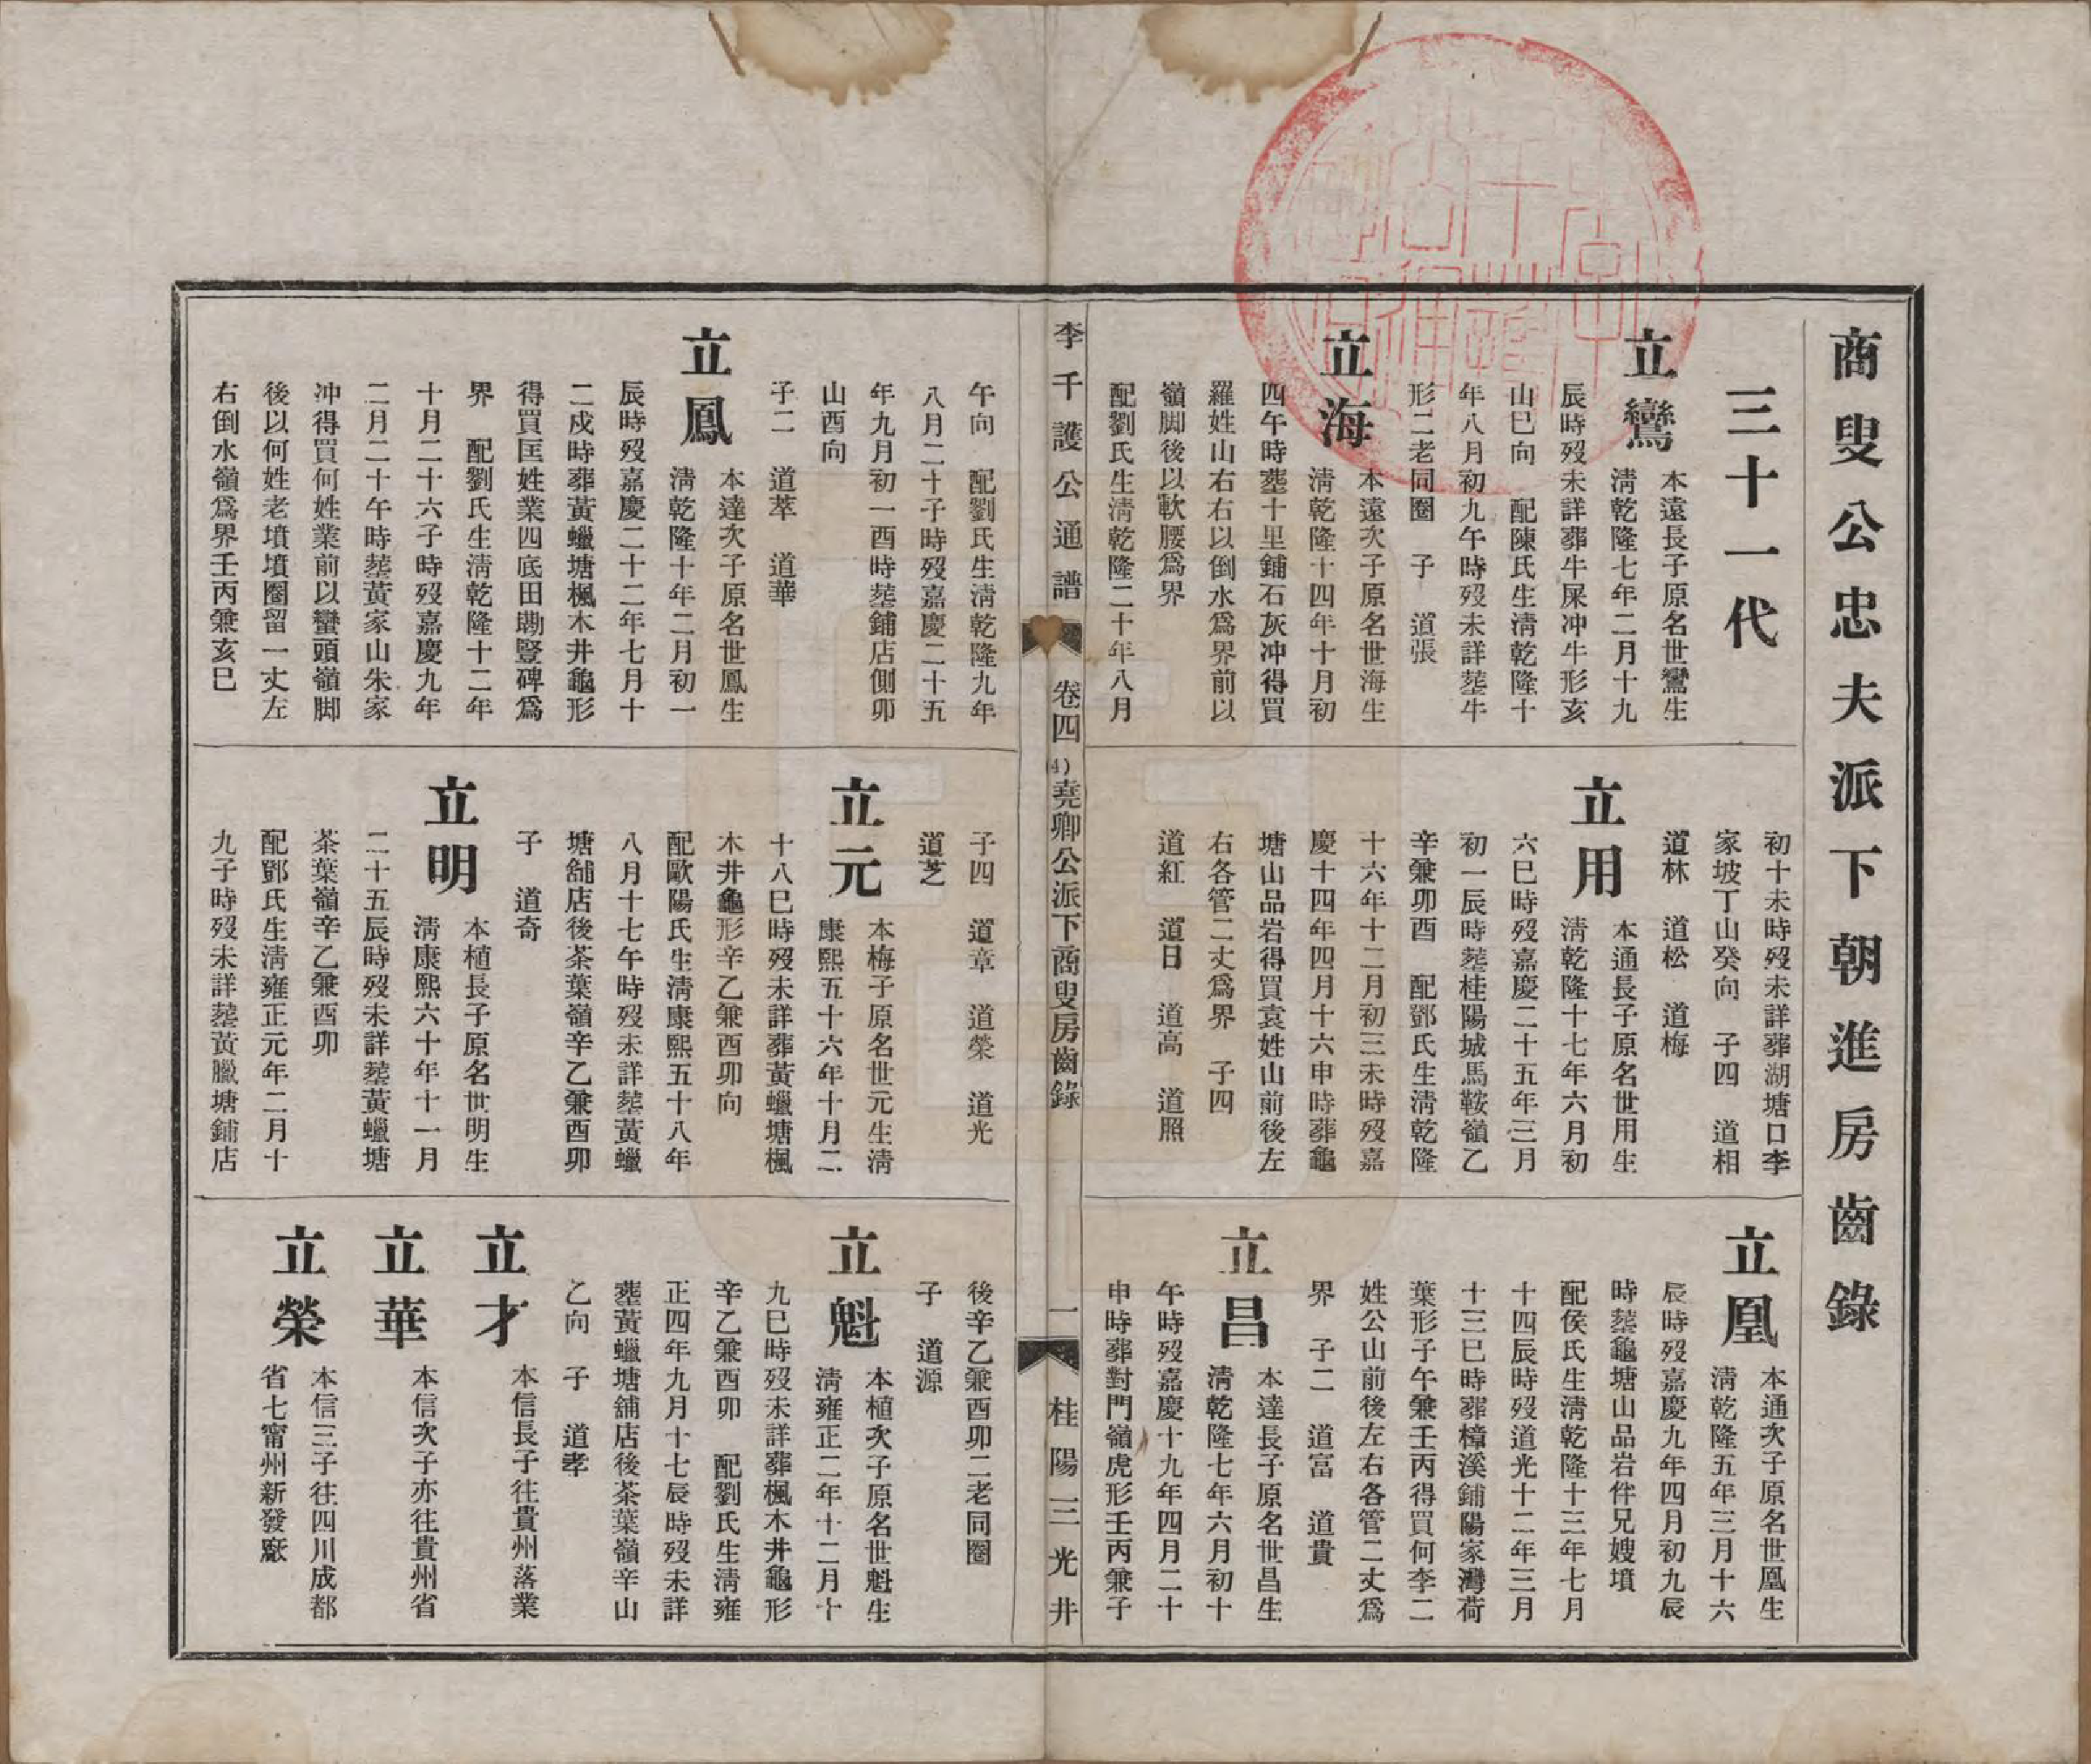 商叟公忠夫派下朝進房齒錄
三十一代
立鸞
本遠長子原名世鸞生
清乾隆七年二月十九
辰時歿未詳葬牛屎冲牛形亥
山巳向　配陳氏生淸乾隆十
年八月初九午時歿未詳塟牛
形二老同圈　子　道張
立海
本遠次子原名世海生
淸乾隆十四年十月初
四午時塟十里鋪石灰冲得買
羅姓山右右以倒水爲界前以
嶺脚後以軟腰爲界
配劉氏生清乾隆二十年八月
初十未時歿未詳葬湖塘口李
家坡丁山癸向　子四　道相
道林　道松　道梅
立用
本通長子原名世用生
淸乾隆十七年六月初
六巳時歿嘉慶二十五年三月
初一辰時塟桂陽城馬鞍嶺乙
辛兼卯酉　配鄧氏生淸乾隆
十六年十二月初三未時歿嘉
慶十四年四月十六申時葬龜
塘山品岩得買袁姓山前後左
右各管二丈爲界　子四
道紅　道日　道高　道照
立凰
本通次子原名世凰生
淸乾隆五年三月十六
辰時歿嘉慶九年四月初九辰
時塟龜塘山品岩伴兄嫂墳
配侯氏生淸乾隆十三年七月
十四辰時歿道光十二年三月
十三巳時葬樟溪鋪陽家灣荷
葉形子午兼壬丙得買何李二
姓公山前後左右各管二丈爲
界　子二　道富　道貴
立昌
本達長子原名世昌生
淸乾隆七年六月初十
午時歿嘉慶十九年四月二十
申時葬對門嶺虎形壬丙兼子
李千護公通譜
卷四
(4)
堯卿公派下商叟房齒錄
一
桂陽三光井
午向　配劉氏生淸乾隆九年
八月二十子時歿嘉慶二十五
年九月初一酉時塟鋪店側卯
山酉向
子二　道萃　道華
立鳳
本達次子原名世鳳生
淸乾隆十年二月初一
辰時歿嘉慶二十二年七月十
二戍時葬黃蠟塘楓木井龜形
得買匡姓業四底田磡豎碑爲
界　配劉氏生淸乾隆十二年
十月二十六子時歿嘉慶九年
二月二十午時塟黃家山朱家
冲得買何姓業前以巒頭嶺脚
後以何姓老墳墳圈留一丈左
右倒水嶺爲界壬丙兼亥巳
子四　道章　道榮　道光
道芝
立元
本梅子原名世元生淸
康熙五十六年十月二
十八巳時歿未詳葬黃蠟塘楓
木井龜形辛乙兼酉卯向
配歐陽氏生淸康熙五十八年
八月十七午時歿未詳塟黃蠟
塘舖店後茶葉嶺辛乙兼酉卯
子　道奇
立明
本植長子原名世明生
淸康熙六十年十一月
二十五辰時歿未詳塟黃蠟塘
茶葉嶺辛乙兼酉卯
配鄧氏生淸雍正元年二月十
九子時歿未詳塟黃臘塘鋪店
後辛乙兼酉卯二老同圈
子　道源
立魁
本植次子原名世魁生
淸雍正二年十二月十
九巳時歿未詳葬楓木井龜形
辛乙兼酉卯　配劉氏生淸雍
正四年九月十七辰時歿未詳
塟黃蠟塘舖店後茶葉嶺辛山
乙向　子　道孝
立才
本信長子往貴州落業
立華
本信次子亦往貴州省
立榮
本信三子往四川成都
省七甯州新發廠